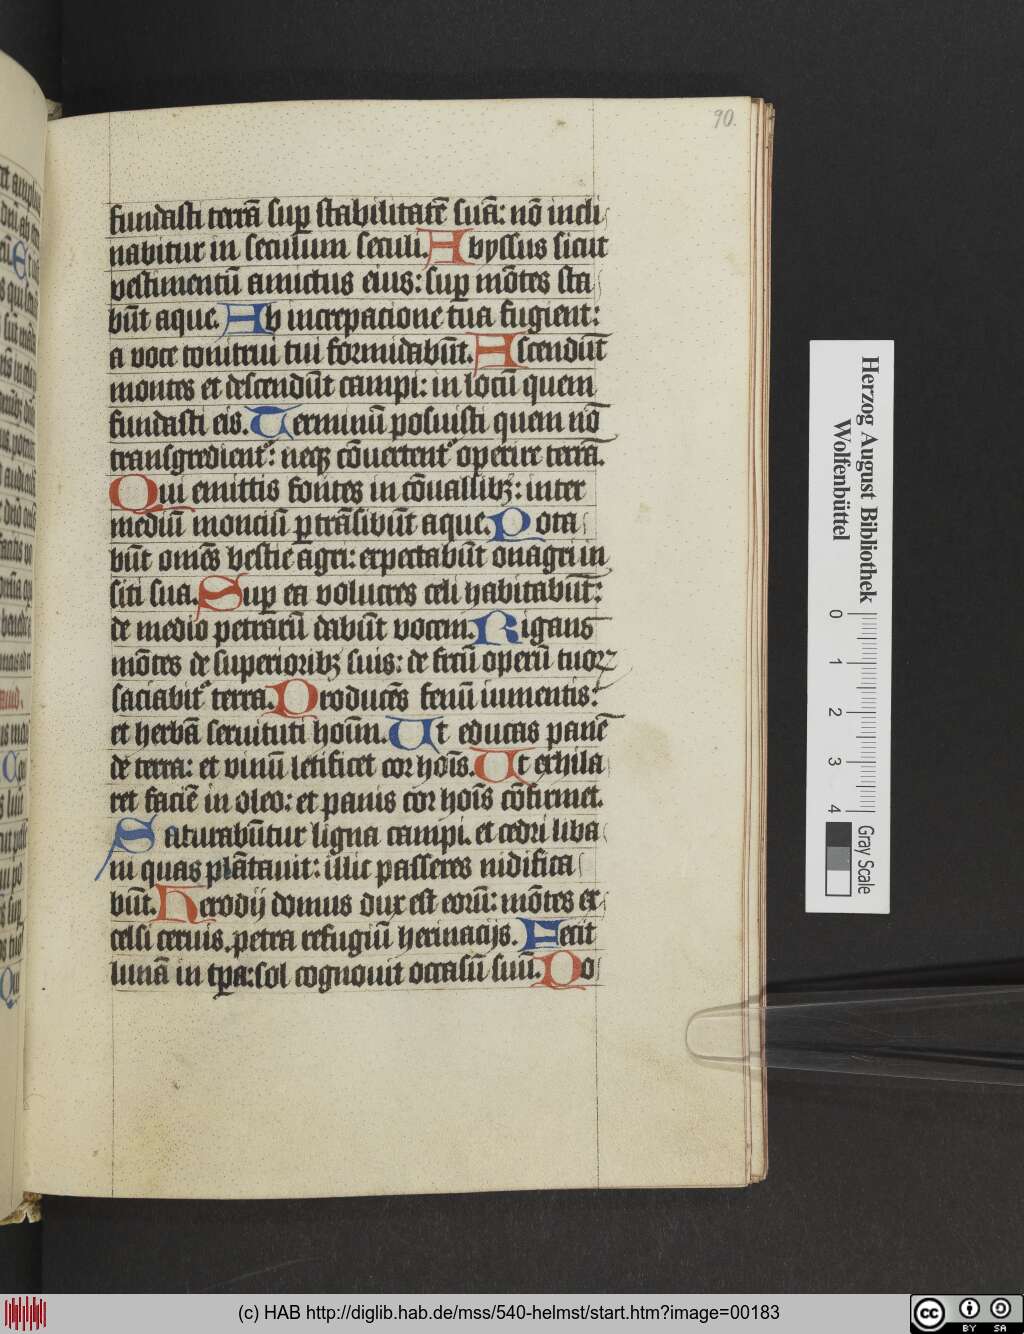 90.
fundasti terrā sup stabilitatē suā: nō incli
nabitur in seculum seculi. Abyssus sicut
vestimentū amictus eius: sup mōtes sta
būt aque. Ab increpacione tua fugient:
a voce tonitrui tui formidabūt. Ascendūt
montes et descendūt campi: in locū quem
fundasti eis. Terminū posuisti quem nō
transgredient: neqꝫ cōvertent operire terrā.
Qui emittis fontes in cōuallibꝫ: inter
mediū monciū ꝑtrāsibūt aque. Pota
būt omēs bestie agri: expectabūt onagri in
siti sua. Sup ea volucres celi habitabūt:
de medio petrarū dabūt vocem. Rigans
mōtes de superioribꝫ suis: de frcū operū tuoꝝ
saciabit terra. Producēs fenū iumentis:
et herbā seruituti hoīm. Ut educas panē
de terra: et vinū letificet cor hoīs. Ut exhila
ret faciē in oleo: et panis cor hoīs cōfirmet.
Saturabūtur ligna campi. et cedri liba
ni quas plātauit: illic passeres nidifica
būt. Herodij domus dux est eorū: mōtes ex
celsi ceruis. petra refugiū herinacijs. Fecit
lunā in tꝑa: sol cognouit occasū suū. Po
Herzog August Bibliothek
Wolfenbüttel
0 1 2 3 4
Gray Scale
(c) HAB http://diglib.hab.de/mss/540-helmst/start.htm?image=00183
cc BY SA